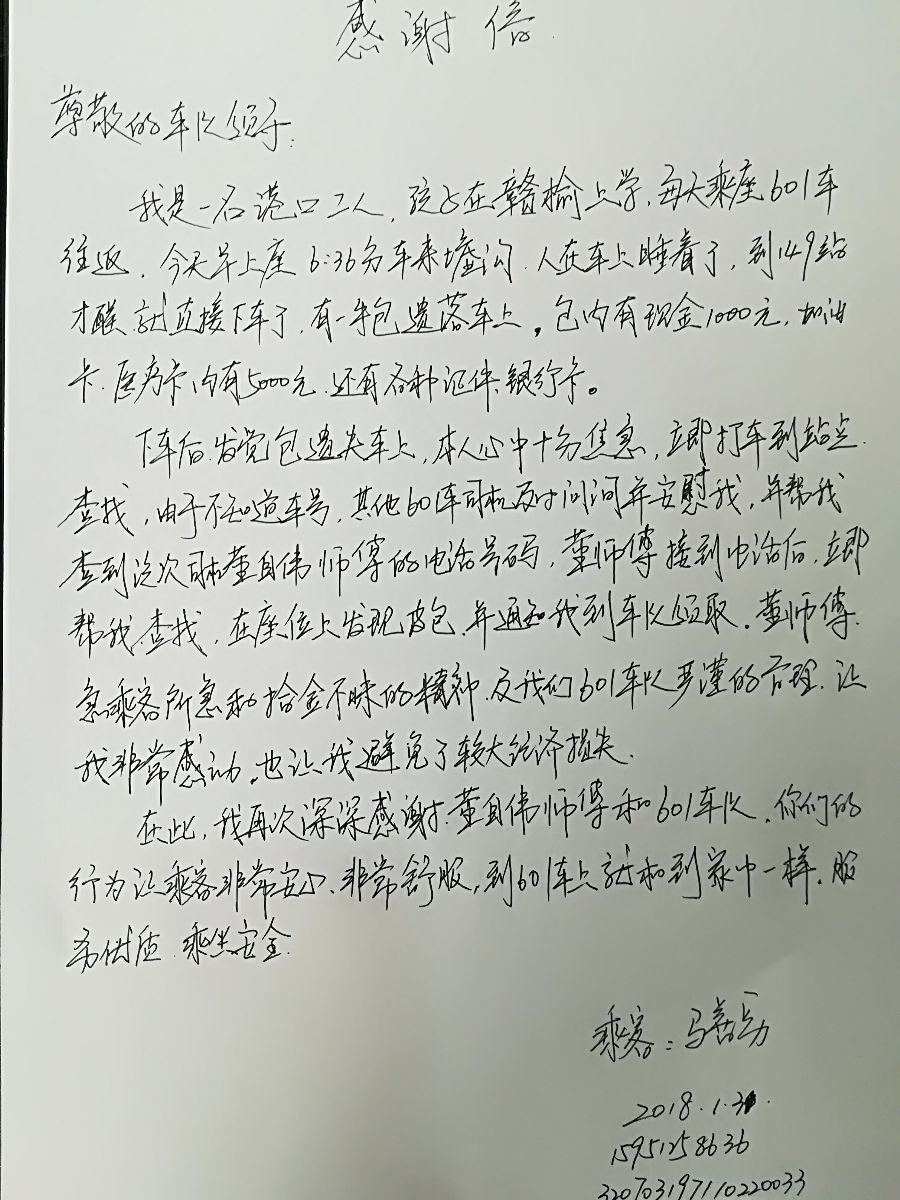 感谢信
尊敬的车队领导:
我是一名港口工人，孩子在赣榆上学，每天乘座601车
往返，今天早上座6:36分车来墟沟，人在车上睡着了，到149站
才醒，就直接下车了，有一手包遗落车上，包内有现金1000元，加油
卡、医疗卡内有5000元，还有各种证件、银行卡。
下车后发觉包遗失车上，本人心中十分焦急，立即打车到站点
查找，由于不知道车号，其他601车司机及时问询并安慰我，并帮我
查到该次司机董自伟师傅的电话号码，董师傅接到电话后，立即
帮我查找，在座位上发现皮包，并通知我到车队领取。董师傅
急乘客所急和拾金不昧的精神及我们601车队严谨的管理，让
我非常感动，也让我避免了较大经济损失。
在此，我再次深深感谢董自伟师傅和601车队，你们的
行为让乘客非常安心、非常舒服，到601车上就和到家中一样，服
务优质、乘坐安全.
乘客：马善
2018.1.
15951258636
320703197110220033